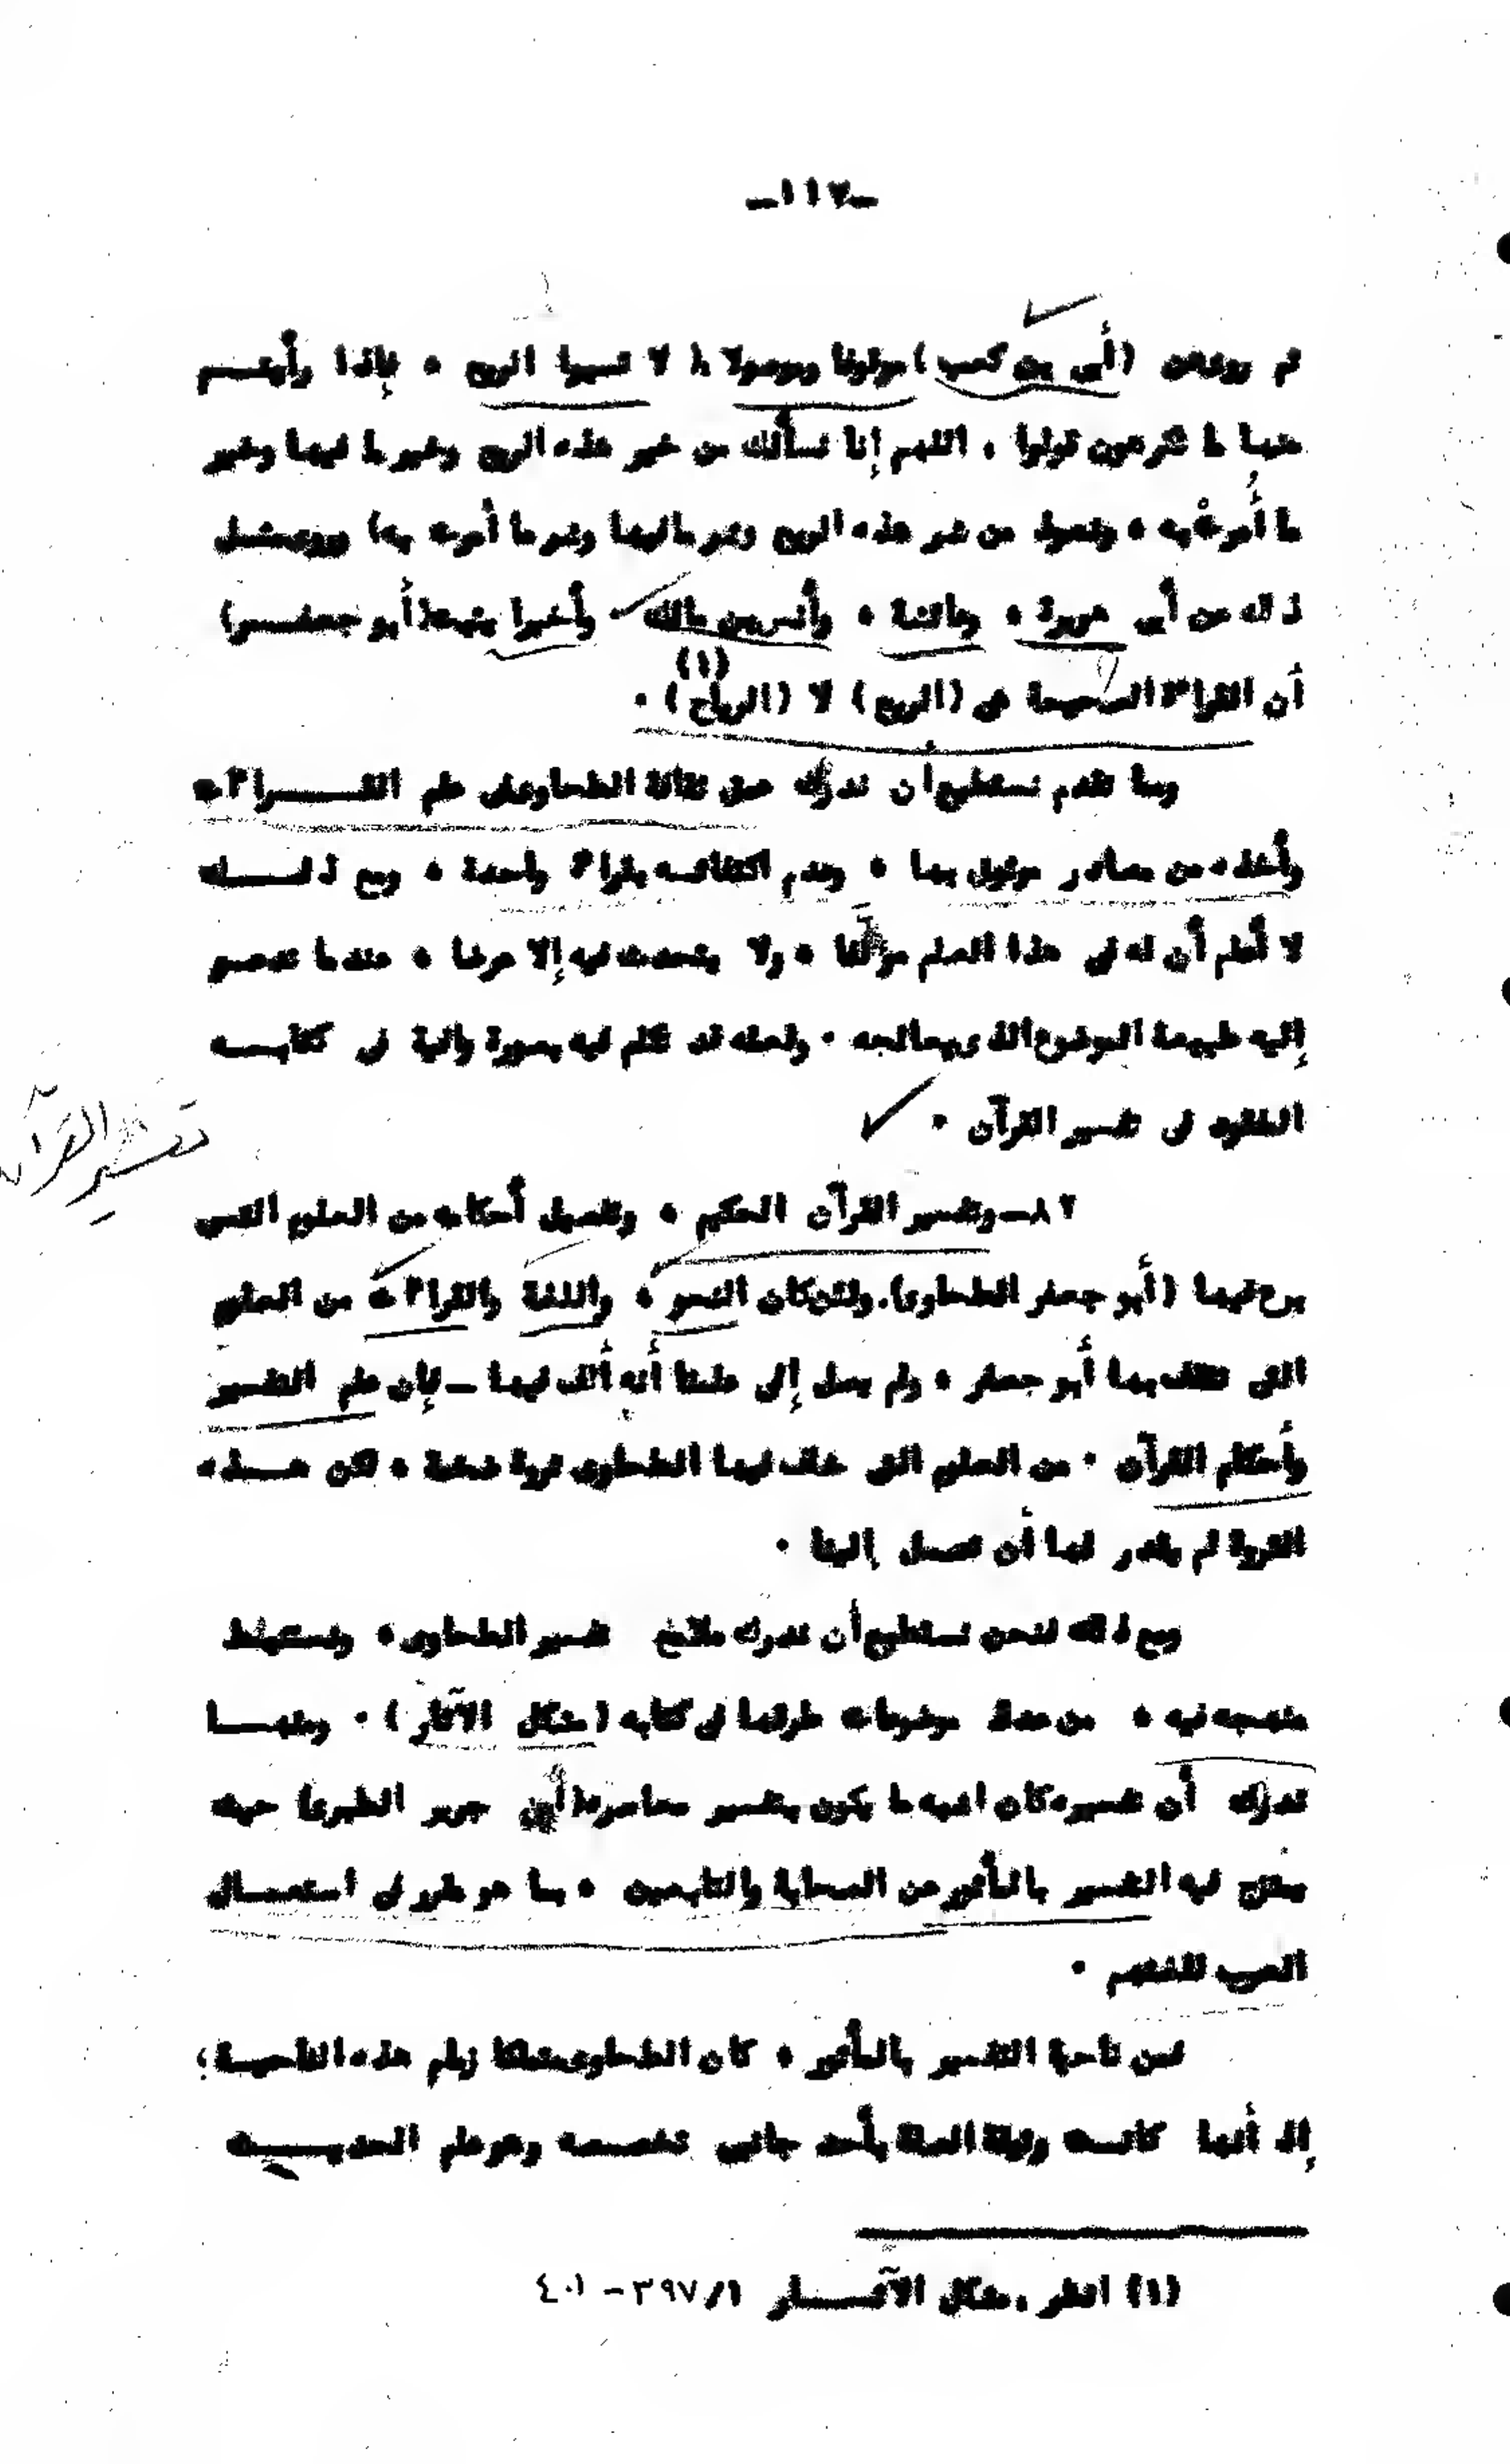 -١١٧-
ثم روى عن (أبي بن كعب) موقوفا وموصولا (لا تسبوا الريح ، فإذا رأيتم
منها ما تكرهون قولوا ، اللهم إنا نسألك من خير هذه الريح وخير ما فيها وخير
ما أُمرتْ به ، ونعوذ من شر هذه الريح وشر ما فيها وشر ما أمرت به) وروى مثل
ذلك عن أبى هريرة ، وعائشة ، وأنس بن مالك ، وأخيرا يثبت (أبو جعفر)
أن القراءة الصحيحة هى (الريح) لا (الرياح) (١) .
ومما تقدم نستطيع أن ندرك عمق ثقافة الطحاوى فى علم القراءات
وأخذه من مصادر موثوق بها ، وعدم اكتفائه بقراءة واحدة ، ومع ذلك
لا أعلم أن له فى هذا العلم مؤلفا ، ولا يتحدث فيه إلا عرضا ، عندما تدعو
إليه طبيعة الموضوع الذى يعالجه . ولعله قد تكلم فيه بصورة وافية فى كتابه
المفقود فى تفسير القرآن .
تفسير القرآن
٨٢- وتفسير القرآن الحكيم ، وتفصيل أحكامه من العلوم التى
برع فيها (أبو جعفر الطحاوى). ولئن كان النحو ، واللغة والقراءات من العلوم
التى تثقف بها أبو جعفر ، ولم يصل إلى علمنا أنه ألف فيها - فإن علم التفسير
وأحكام القرآن . من العلوم التى خلف فيها الطحاوى ثروة ضخمة ، لكن هذه
الثروة لم يقدر لها أن تصل إلينا .
ومع ذلك فنحن نستطيع أن ندرك ملامح تفسير الطحاوى ، ونستنبط
منهجه فيه ، من عدة موضوعات طرقها فى كتابه (مشكل الآثار) . ومنها
ندرك أن تفسيره كان أشبه ما يكون بتفسير معاصره (ابن جرير الطبرى) حيث
يمتزج فيه التفسير بالمأثور عن الصحابة والتابعين ، بما هو مقرر فى استعمال
العرب للغتهم .
فمن ناحية التفسير بالمأثور ، كان الطحاوى ممتلكا زمام هذه الناحية؛
إذ أنها كانت وثيقة الصلة بأحد جانبى تخصصه وهو علم الحديث
(١) انظر ، مشكل الآثار ١/٣٩٧ - ٤٠١